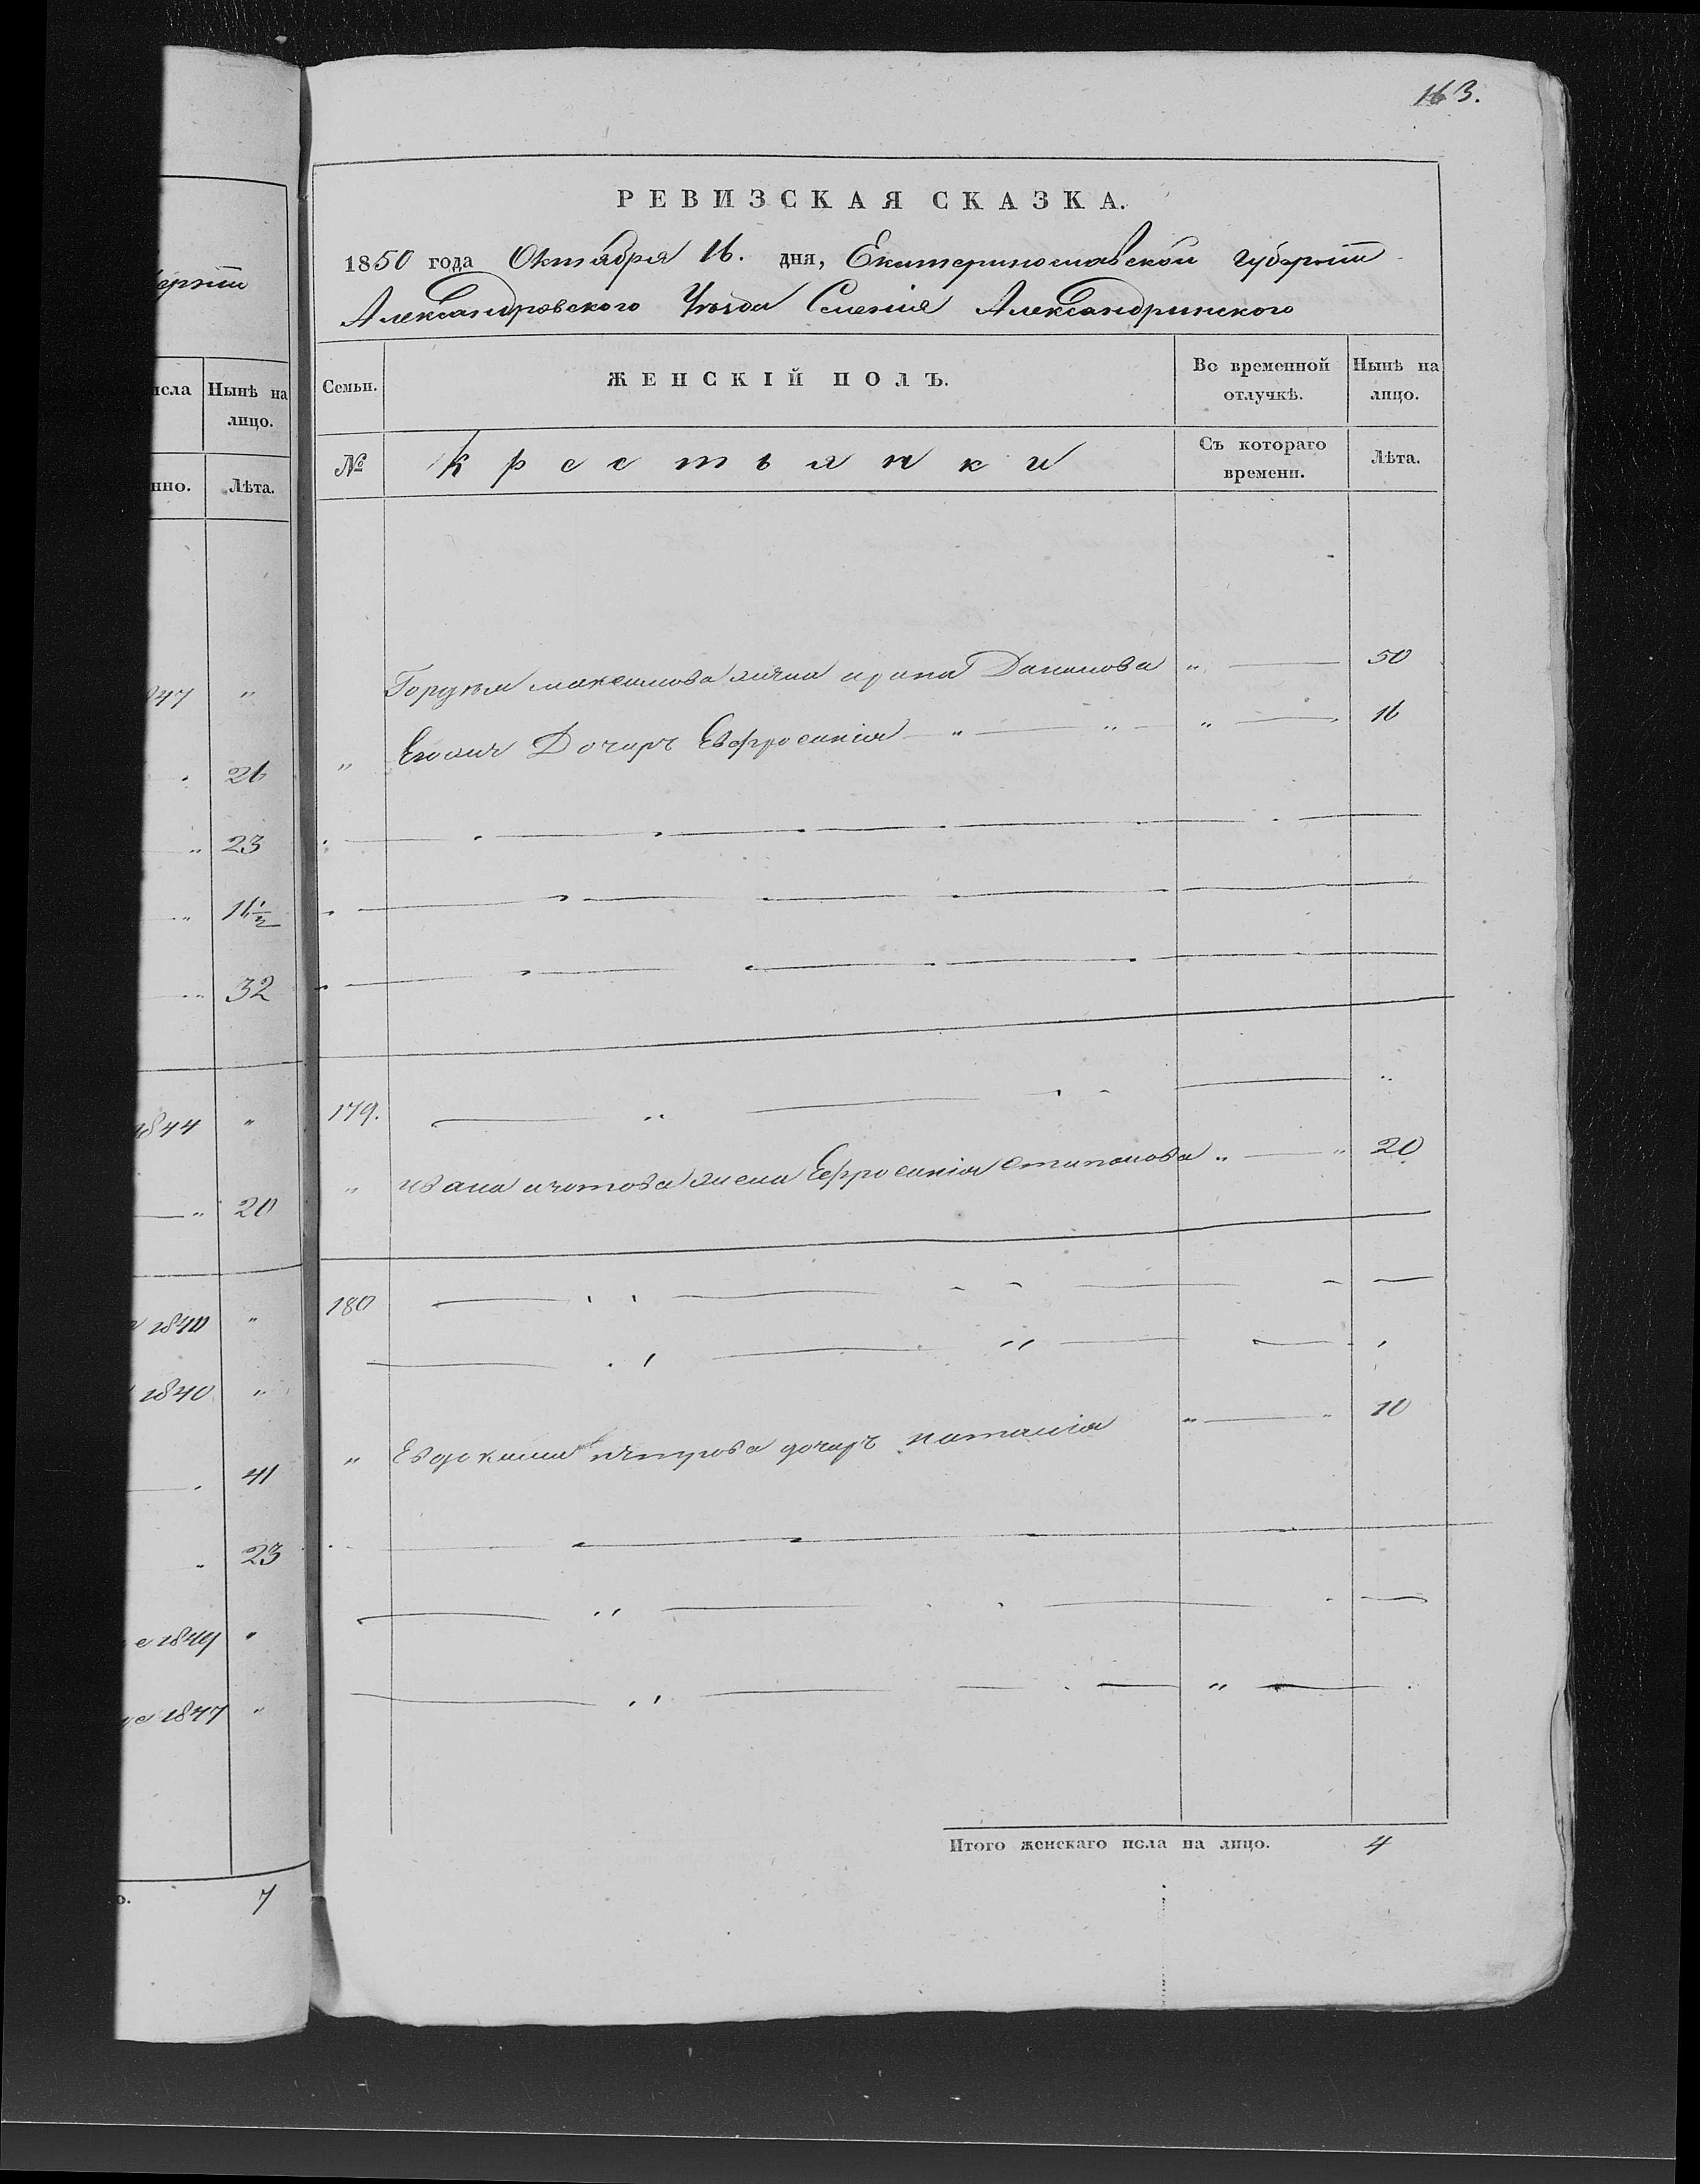 163.
РЕВИЗСКАЯ СКАЗКА.
1850 года Октября 16. дня, Екатеринославской губернiи
Александровского Уѣзда Селенiя Александринского
Семьи. ЖЕНСКIЙ ПОЛЪ. Во временной отлучкѣ. Нынѣ на лицо.
№ Крестьянки Съ котораго времени. Лѣта.
максимова жина Данилова " 50
" Дочирь Евфросинiя " " " 16
179. "
" ивана жена Ефросинiя стипанова " " 20
180
" Евдокима пятрова дочирь наталiя " " 10
Итого женскаго пола на лицо. 4
Нынѣ на лицо.
Лѣта.
"
26
" 23
" 11½
" 32
1844 "
" 20
1840 "
1840 "
41
23
1849 "
1847 "
7